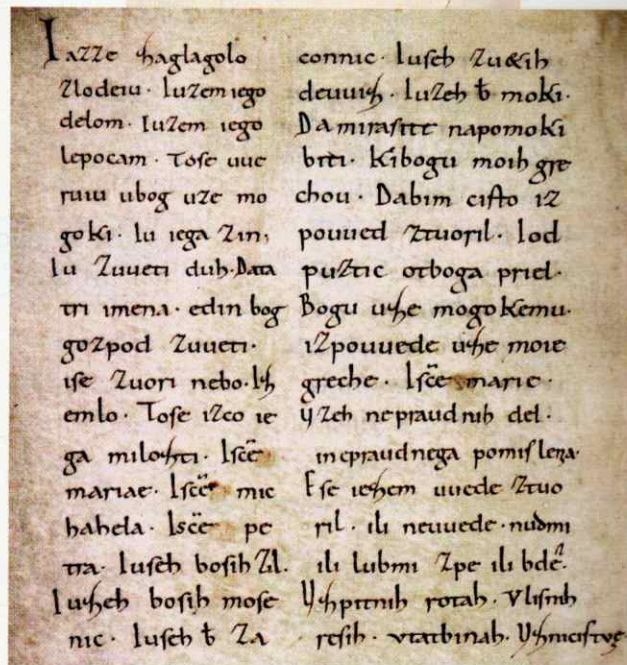 Iazze zaglagolo
zlodeiu· Iuzem iego
delom· Iuzem iego
lepocam· Tose uue
ruiu ubog uze mo
goki· Iu iega zin,
Iu zuueti duh· Data
tri imena· edin bog
gozpod zuueti·
ise zuori nebo· Iz
emlo· Tose izco ie
ga milozti· Isce
mariae· Isce mic
hahela· Isce pe
tra· Iuseh bosih zil·
Iuzeh bosih mose
nic· Iuseh ƀ za
connic· Iuseh zu&ih
deuuiz· Iuzeh ƀ moki·
Da mirasite napomoki
bëti· Kibogu moih gre
chou· Dabim cisto iz
pouued ztuoril· Iod
puztic otboga priel·
Bogu uze mogokemu·
izpouuede uze moie
greche· Isce marie·
Uzeh nepraudnih del·
inepraudnega pomislena·
Ese iezem uuede ztuo
ril· ili neuuede· nudmi
ili lubmi zpe ili bde·
Uzpitnih rotah· Vlisnih
resih· vtatbinah· Uznicistve·